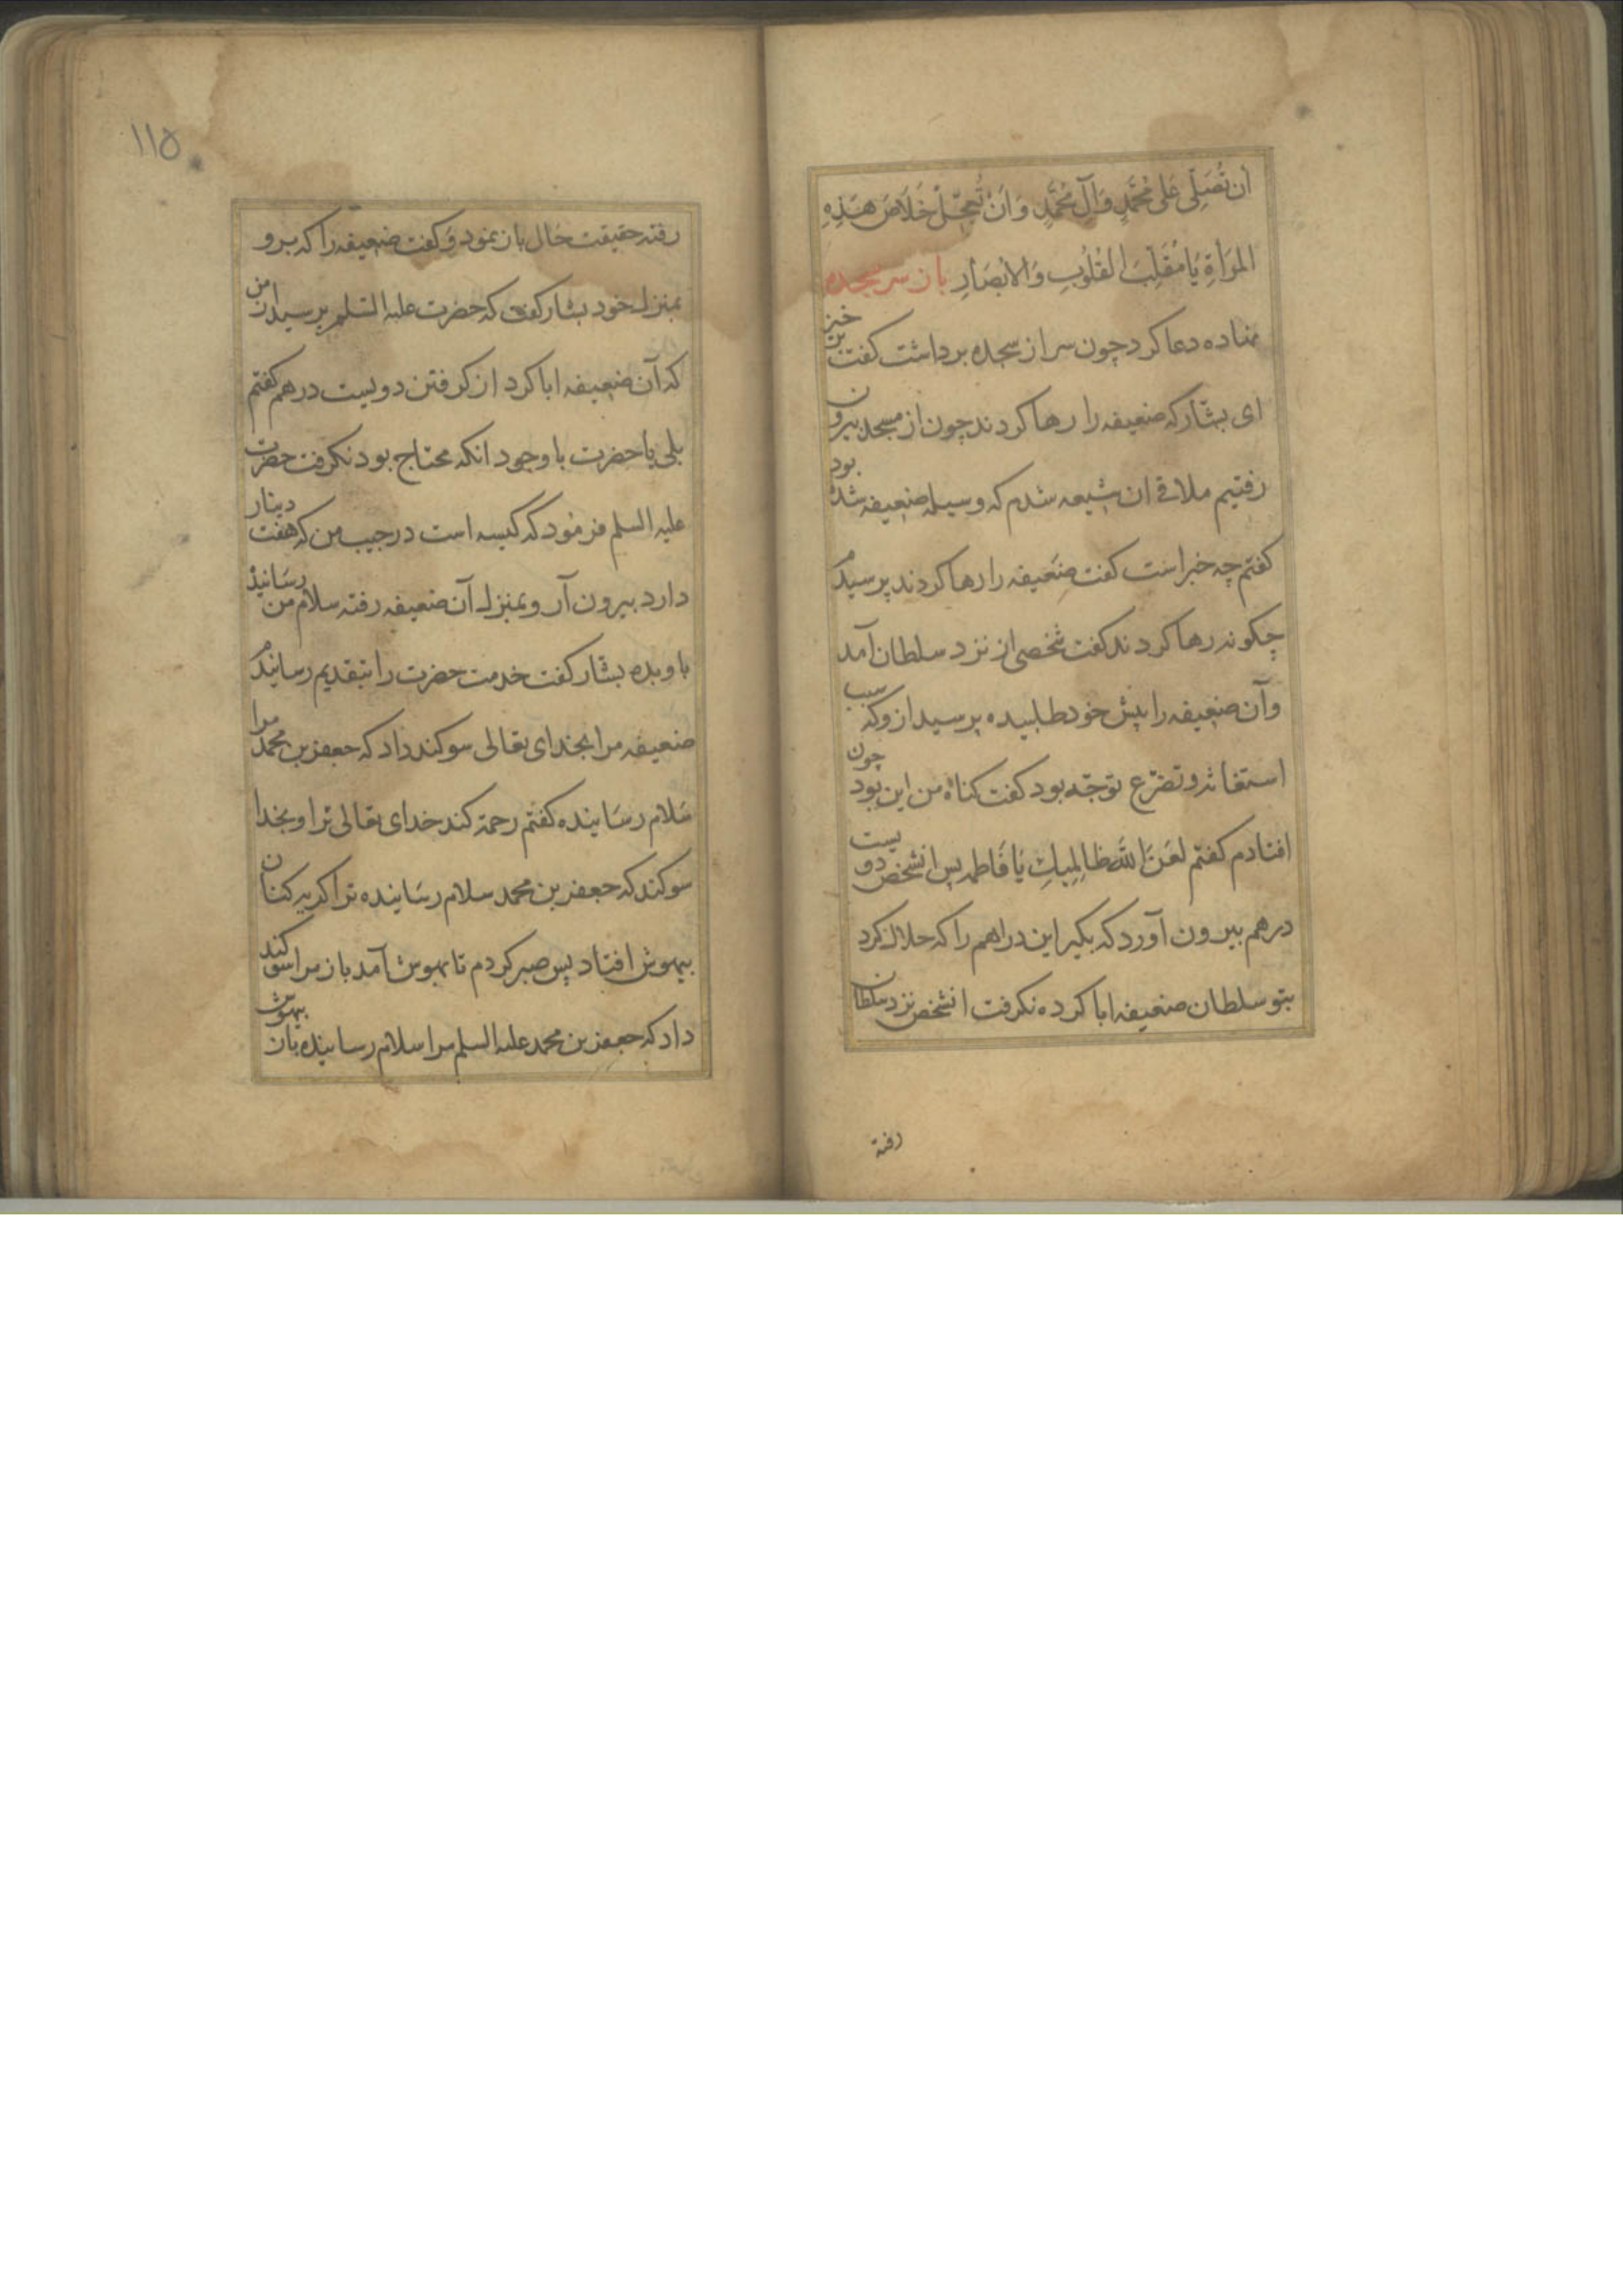 اَن تُصَلِّیَ عَلی مُحَمَّدٍ وَآلِ مُحَمَّدٍ وَ اَنْ تُعَجِّلَ خَلَاصَ هٰذِهِ
المَرأَةِ یَا مُقَلِّبَ القُلُوبِ وَالاَبصَارِ باز سر بسجده
نهاده دعا کرد چون سر از سجده برداشت کفت خیز
ای بشّار که ضعیفه را رها کردند چون از مسجد بیرون
رفتیم ملاقی ان شیعه شدم که وسیله ضعیفه شده بود
کفتم چه خبر است کفت ضعیفه را رها کردند پرسیدم
چکونه رها کردند کفت شخصی از نزد سلطان آمد
وآن ضعیفه را پیش خود طلبیده پرسید ازو که سبب
استغاثه و تضرّع تو چه بود کفت کناه من این بود چون
افتادم کفتم لَعَنَ اللهُ ظَالِمِیكِ یَا فَاطمه پس انشخص دویست
درهم بیرون آورد که بکیر این دراهم را که حلال کرد
بتو سلطان ضعیفه ابا کرده نکرفت انشخص نزد سلطان
رفته
۱۱۵
رفته حقیقت حال باز نمود و کفت ضعیفه را که برو
بمنزل خود بشار کفت که حضرت علیه السلم پرسید از من
که آن ضعیفه ابا کرد از کرفتن دویست درهم کفتم
بلی یا حضرت با وجود انکه محتاج بود نکرفت حضرت
علیه السلم فرمود که کیسه است در جیب من که هفت دینار
دارد بیرون آر و بمنزل آن ضعیفه رفته سلام من رسانیده
باو بده بشار کفت خدمت حضرت را بتقدیم رسانیدم
ضعیفه مرا بخدای تعالی سوکند داد که جعفر بن محمد مرا
سلام رسانیده کفتم رحمة کند خدای تعالی ترا و بخدا
سوکند که جعفر بن محمد سلام رسانیده ترا کریه کنان
بیهوش افتاد پس صبر کردم تا بهوش آمد باز مرا سوکند
داد که جعفر بن محمد علیه السلم مرا سلام رسانیده باز بیهوش